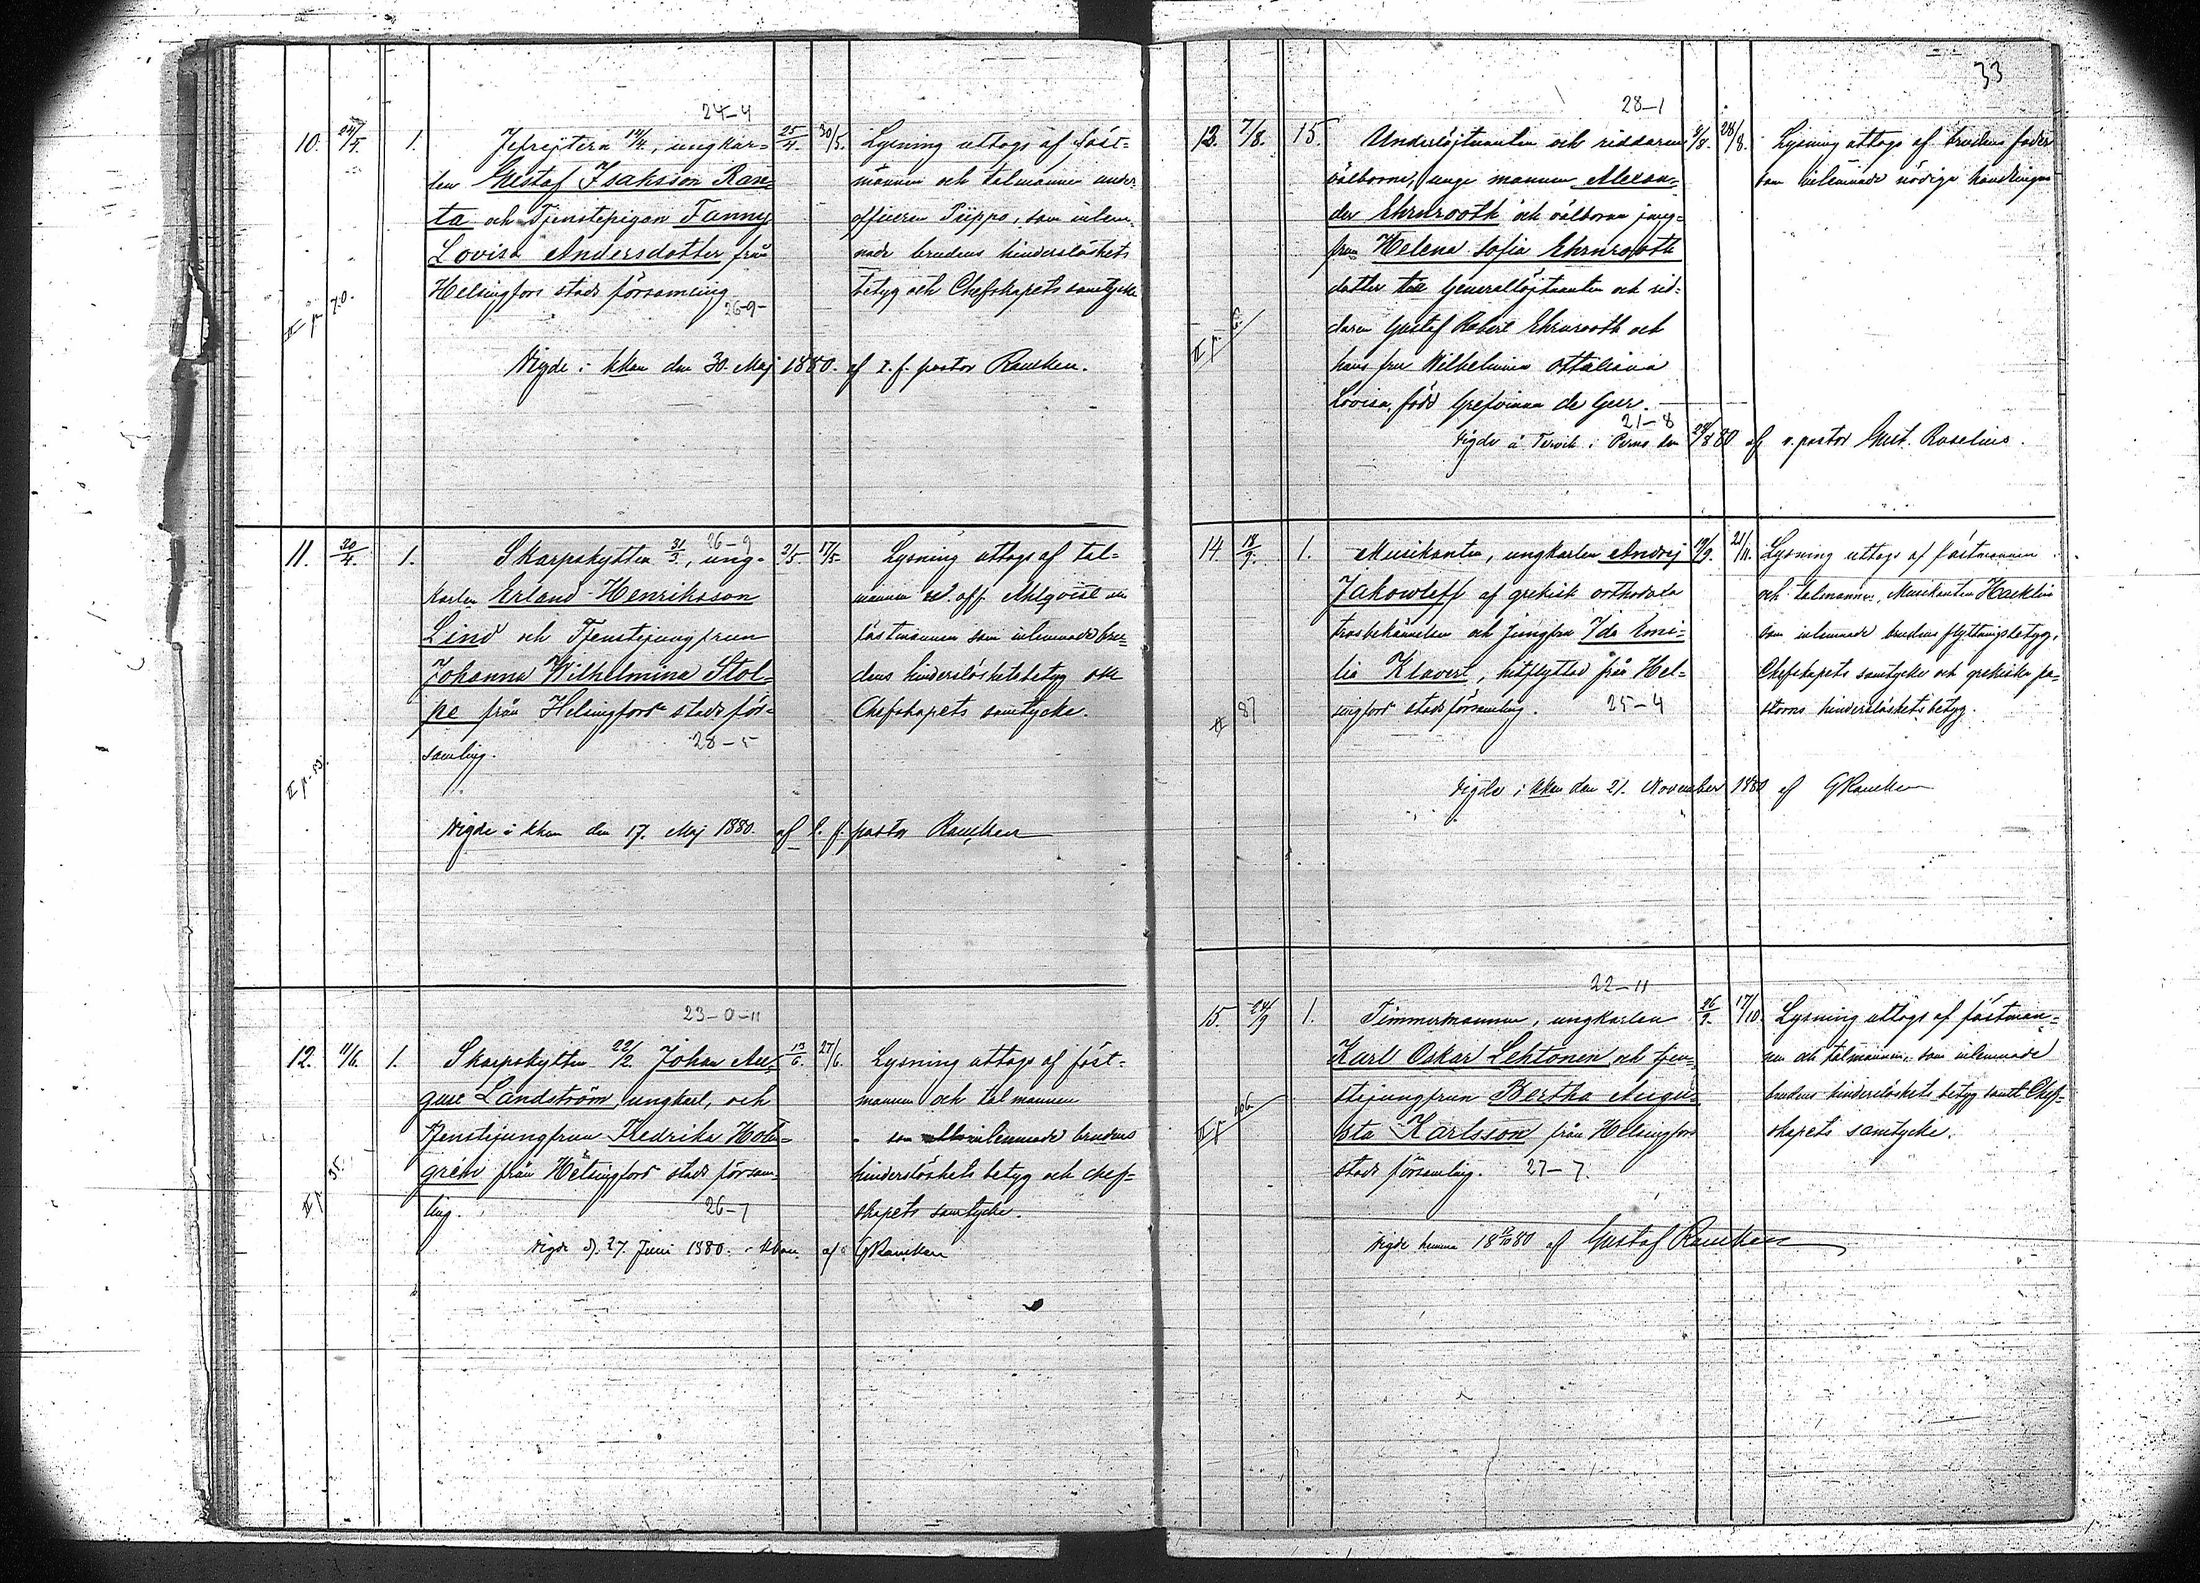 24-4
10. 24/4. 1. Jefrejtern 14/4, ungkar- 25/4. 30/5. Lysning uttogs af fäst-
len Gustaf Isaksson Ran- mannen och talmannen under-
ta och Tjenstepigan Fanny officeren Piippo, som inlem-
Lovisa Andersdotter från nade brudens hinderslöshets
Helsingfors stads församling betyg och Chefskapets samtycke
26-9-
II p 70.
Vigde i kkan den 30. Maj 1880. af t. f. pastor Rancken.
26-9
11. 20/4. 1. Skarpskytten 31/3., ung- 2/5. 17/5. Lysning uttogs af tal-
karlen Erland Henriksson mannen und. off. Ahlqvist
Lind och Tjenstejungfrun fästmannen som inlemnade bru-
Johanna Wilhelmina Stol- dens hinderslöshetsbetyg och
pe från Helsingfors stads för- Chefskapets samtycke.
samling.
28-5
II p. 53.
Vigde i kkan den 17. Maj 1880. af t. f. pastor Rancken
23-0-11
12. 11/6. 1. Skarpskytten 22/2. Johan Au- 13/6. 27/6. Lysning uttogs af fäst-
gust Landström, ungkarl, och mannen och talmannen
Tjenstejungfrun Fredrika Holm- som inlemnade brudens
grén från Helsingfors stads försam- hinderslöshets betyg och chef-
ling. skapets samtycke.
26-7
II p 35.
Vigde d. 27. Juni 1880. i kkan af GRancken
33
28-1
13. 7/8. 15. Underlöjtnanten och riddaren 8/8. 28/8. Lysning uttogs af brudens fader
välborne, unge mannen Alexan- som inlemnade nödiga handlingar
der Ehrnrooth och välborna jung-
frun Helena Sofia Ehrnrooth
dotter till Generallöjtnanten och rid-
daren Gustaf Robert Ehrnrooth och
hans fru Wilhelmina Ottaliana
Lovisa, född Grefvinna de Geer.
21-8
II p
Vigde å Tervik i Perno den 28/8 80 af v. pastor Gust. Roselius.
14. 18/9. 1. Musikanten, ungkarlen Andrej 19/9. 21/11. Lysning uttogs af fästmannen
Jakowleff af grekisk orthodoxa och talmannen, Musikanten Hacklin
trosbekännelsen och Jungfru Ida Emi- som inlemnade brudens flyttningsbetyg,
lia Klavert, hitflyttad från Hel- Chefskapets samtycke och grekiska pa-
singfors stads församling. 25-4 storns hinderslöshetsbetyg.
II 87
Vigde i kkan den 21. November 1880 af GRancken
22-11
15. 24/9 1. Timmermannen, ungkarlen 26/9. 17/10. Lysning uttogs af fästman-
Karl Oskar Lehtonen och tjen- nen och talmannen, som inlemnade
stejungfrun Bertha Augu- brudens hinderslöshets betyg samt Chef-
sta Karlsson från Helsingfors skapets samtycke.
stads församling. 27-7.
II p 106
Vigde hemma 18 17/10 80 af Gustaf Rancken